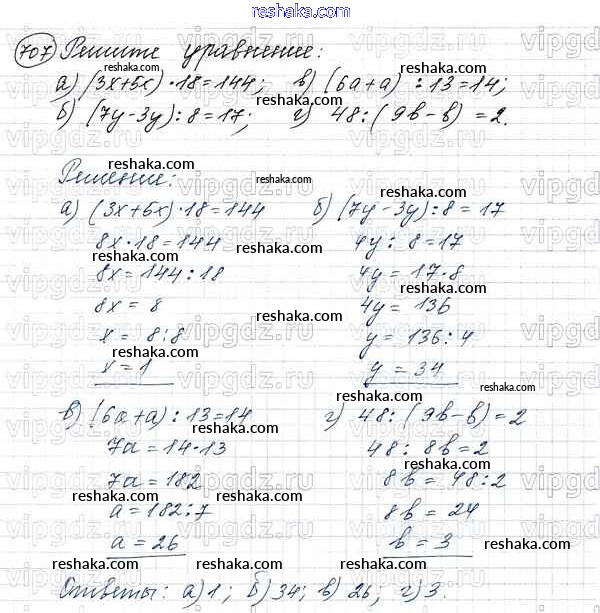 reshaka.com
707 Решите уравнение:
а) (3x+5x) · 18 = 144; в) (6a+a) : 13 = 14;
б) (7y-3y) : 8 = 17; г) 48 : (9b-b) = 2.
Решение:
а) (3x+5x) · 18 = 144
8x · 18 = 144
8x = 144 : 18
8x = 8
x = 8 : 8
x = 1
б) (7y-3y) : 8 = 17
4y : 8 = 17
4y = 17 · 8
4y = 136
y = 136 : 4
y = 34
в) (6a+a) : 13 = 14
7a = 14 · 13
7a = 182
a = 182 : 7
a = 26
г) 48 : (9b-b) = 2
48 : 8b = 2
8b = 48 : 2
8b = 24
b = 3
Ответы: а) 1; б) 34; в) 26; г) 3.
reshaka.com
vipgdz.ru